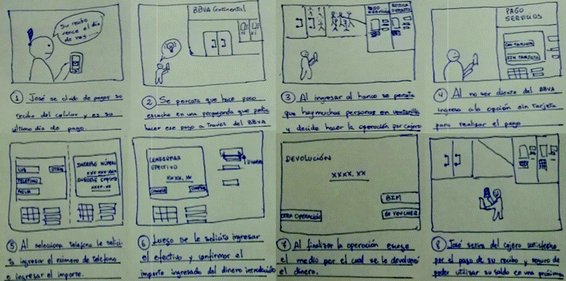 Su recibo
vence el día
de hoy
① José se olvidó de pagar su
recibo del celular y es su
último día de pago
BBVA Continental
② Se percata que hace poco
escuchó en una propaganda que podía
hacer ese pago a través del BBVA
③ Al ingresar al banco se percata
que hay muchas personas en ventanilla
y decide hacer la operación por cajero
PAGO
SERVICIOS
CON TARJETA
SIN TARJETA
④ Al no ser cliente del BBVA
ingresa a la opción sin tarjeta
para realizar el pago
LUZ
TELEFONO
AGUA
INGRESE NÚMERO
XXX XXX XXX
INGRESE IMPORTE
⑤ Al seleccionar telefono le solici-
ta ingresar el número de telefono
e ingresar el importe.
INGRESAR
EFECTIVO
XXXX.XX
DINERO
⑥ Luego de le solicita ingresar
el efectivo y confirmar el
importe ingresado del dinero introducido
DEVOLUCIÓN
XXXX.XX
BIM
OTRA OPERACIÓN
EN VOUCHER
⑦ Al finalizar la operación escoge
el medio por el cual se le devolverá
el dinero.
⑧ José se retira del cajero satisfecho
por el pago de su recibo y seguro de
poder utilizar su saldo en una próxima